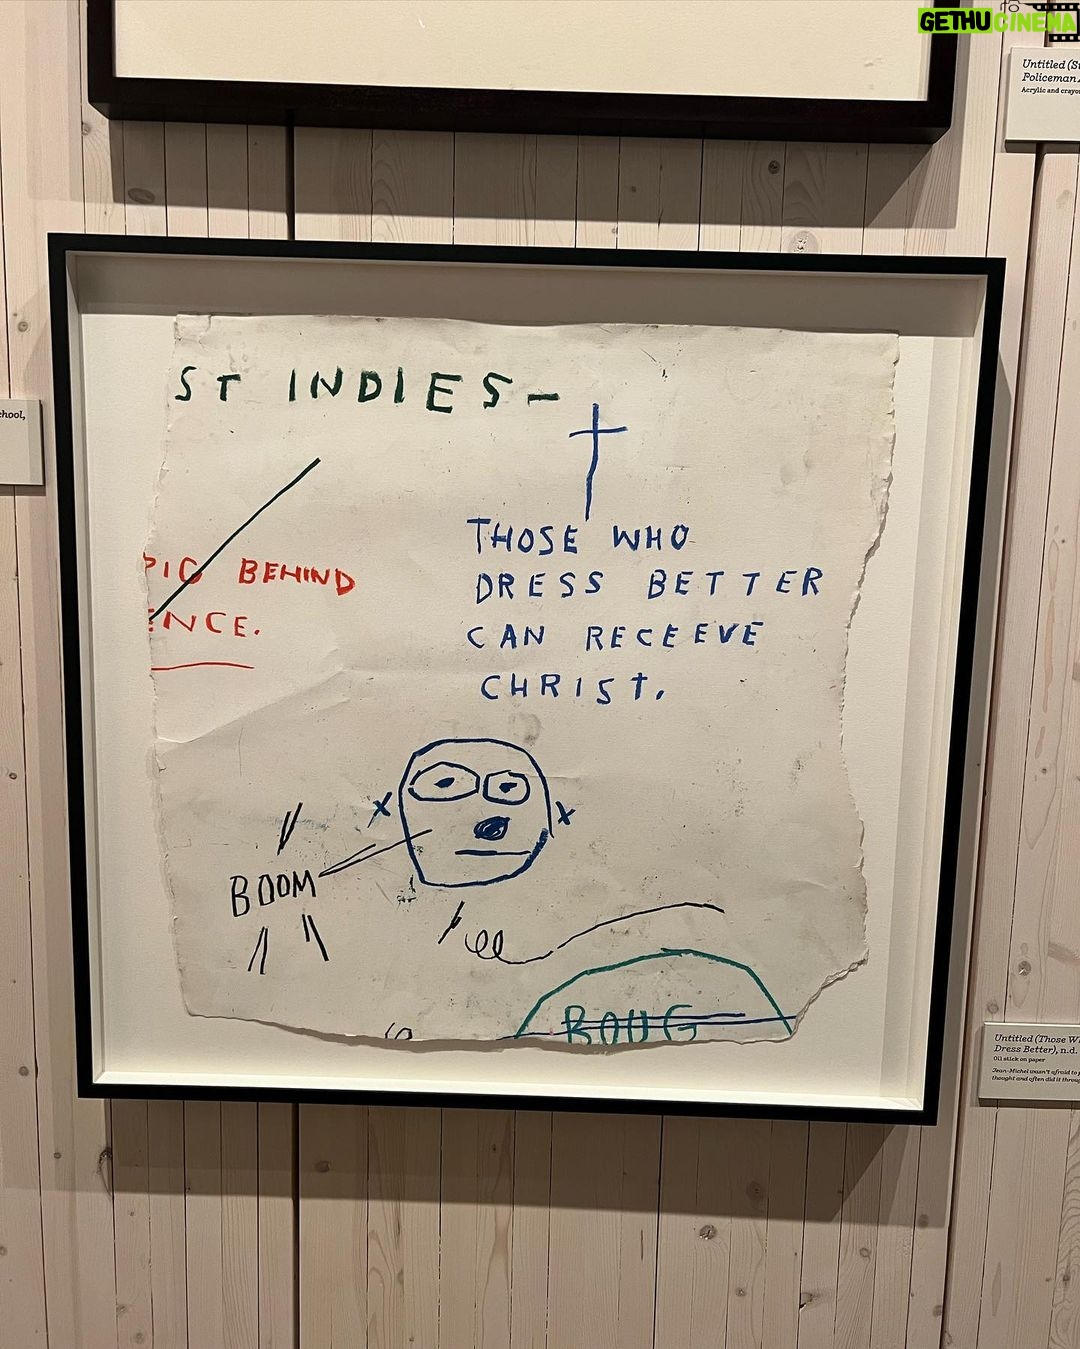 GETHUCINEMA
Untitled (St
Policeman
Acrylic and crayo
chool,
ST INDIES-
PIG BEHIND
ENCE.
THOSE WHO
DRESS BETTER
CAN RECEEVE
CHRIST.
BOOM
BOUG
Untitled (Those W
Dress Better), n.d.
Oil stick on paper
Jean-Michel wasn't afraid to
thought and often did it throu